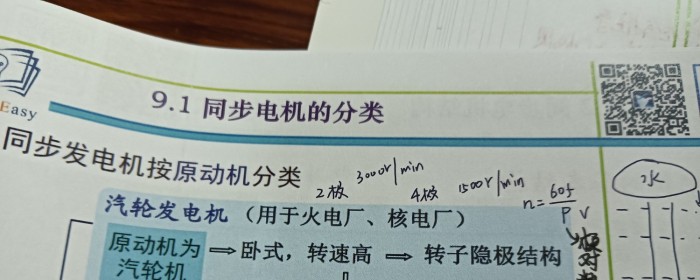 Easy
9.1 同步电机的分类
同步发电机按原动机分类
2极 3000r/min 4极 1500r/min
n=60f/P
水
汽轮发电机（用于火电厂、核电厂）
原动机为
汽轮机
⇒卧式，转速高 ⇒ 转子隐极结构
极对